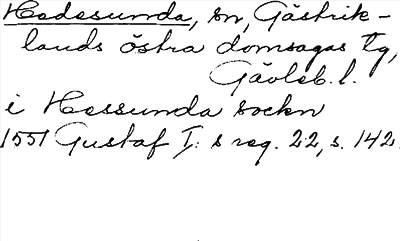 Hedesunda, sn, Gästrik-
lands östra domsagas tg,
Gävleb. l.
i Hessunda sockn
1551 Gustaf I: s reg. 22, s. 142.